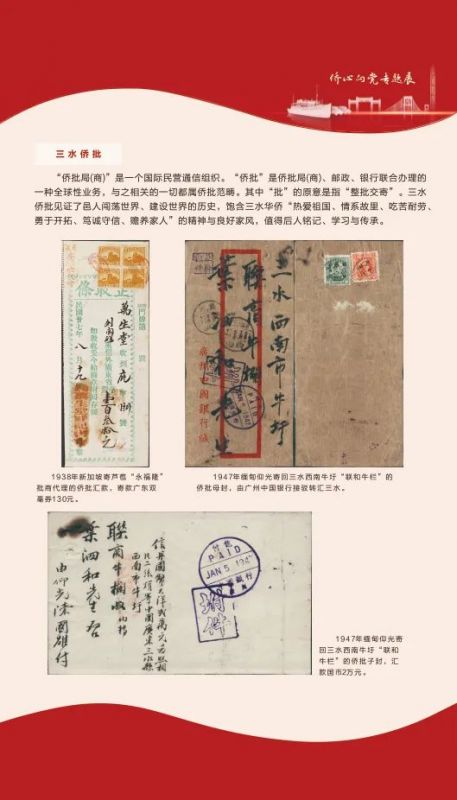 侨心向党专题展
三水侨批
“侨批局(商)”是一个国际民营通信组织。“侨批”是侨批局(商)、邮政、银行联合办理的
一种全球性业务，与之相关的一切都属侨批范畴。其中“批”的原意是指“整批交寄”。三水
侨批见证了邑人闯荡世界、建设世界的历史，饱含三水华侨“热爱祖国、情系故里、吃苦耐劳、
勇于开拓、笃诚守信、赡养家人”的精神与良好家风，值得后人铭记、学习与传承。
正收條
民國廿七年 八月十九
萬生堂
1938年新加坡寄芦苞“永福隆”
批商代理的侨批汇款，寄款广东双
毫券130元。
三水西南市牛圩
聯商牛欄
葉泗和先生
廣州中國銀行緘
PAID
1947年缅甸仰光寄回三水西南牛圩“联和牛栏”的
侨批母封，由广州中国银行接驳转汇三水。
信與國幣大洋貳萬元
西南市牛圩
聯商牛欄
葉泗和先生
由仰光
付
PAID
JAN 5 194
1947年缅甸仰光寄
回三水西南牛圩“联和
牛栏”的侨批子封，汇
款国币2万元。